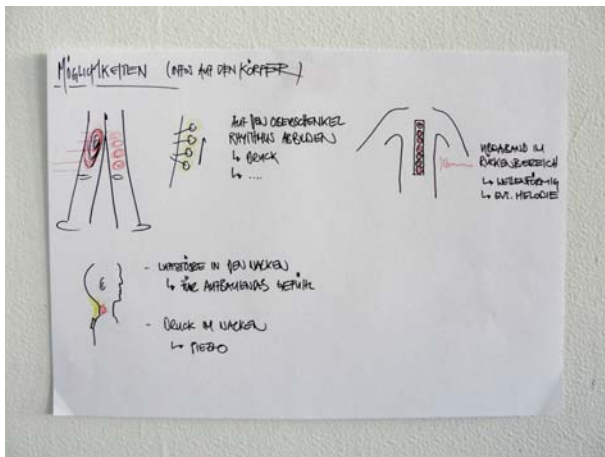 MÖGLICHKEITEN (INFOS AUF DEN KÖRPER)
AUF DEN OBERSCHENKEL
RHYTHMUS ABBILDEN
↳ DRUCK
↳ ....
VIBRABAND IM
RÜCKENBEREICH
↳ WELLENFÖRMIG
↳ EVT. MELODIE
- LUFTSTÖSSE IN DEN NACKEN
↳ FÜR AUFBAUENDES GEFÜHL
- DRUCK IM NACKEN
↳ PIEZO